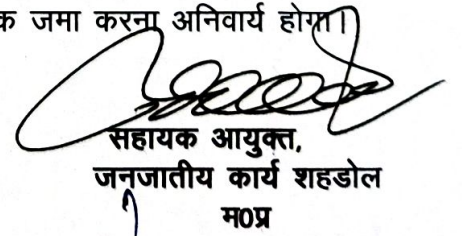 क जमा करना अनिवार्य होगा।
सहायक आयुक्त,
जनजातीय कार्य शहडोल
म0प्र